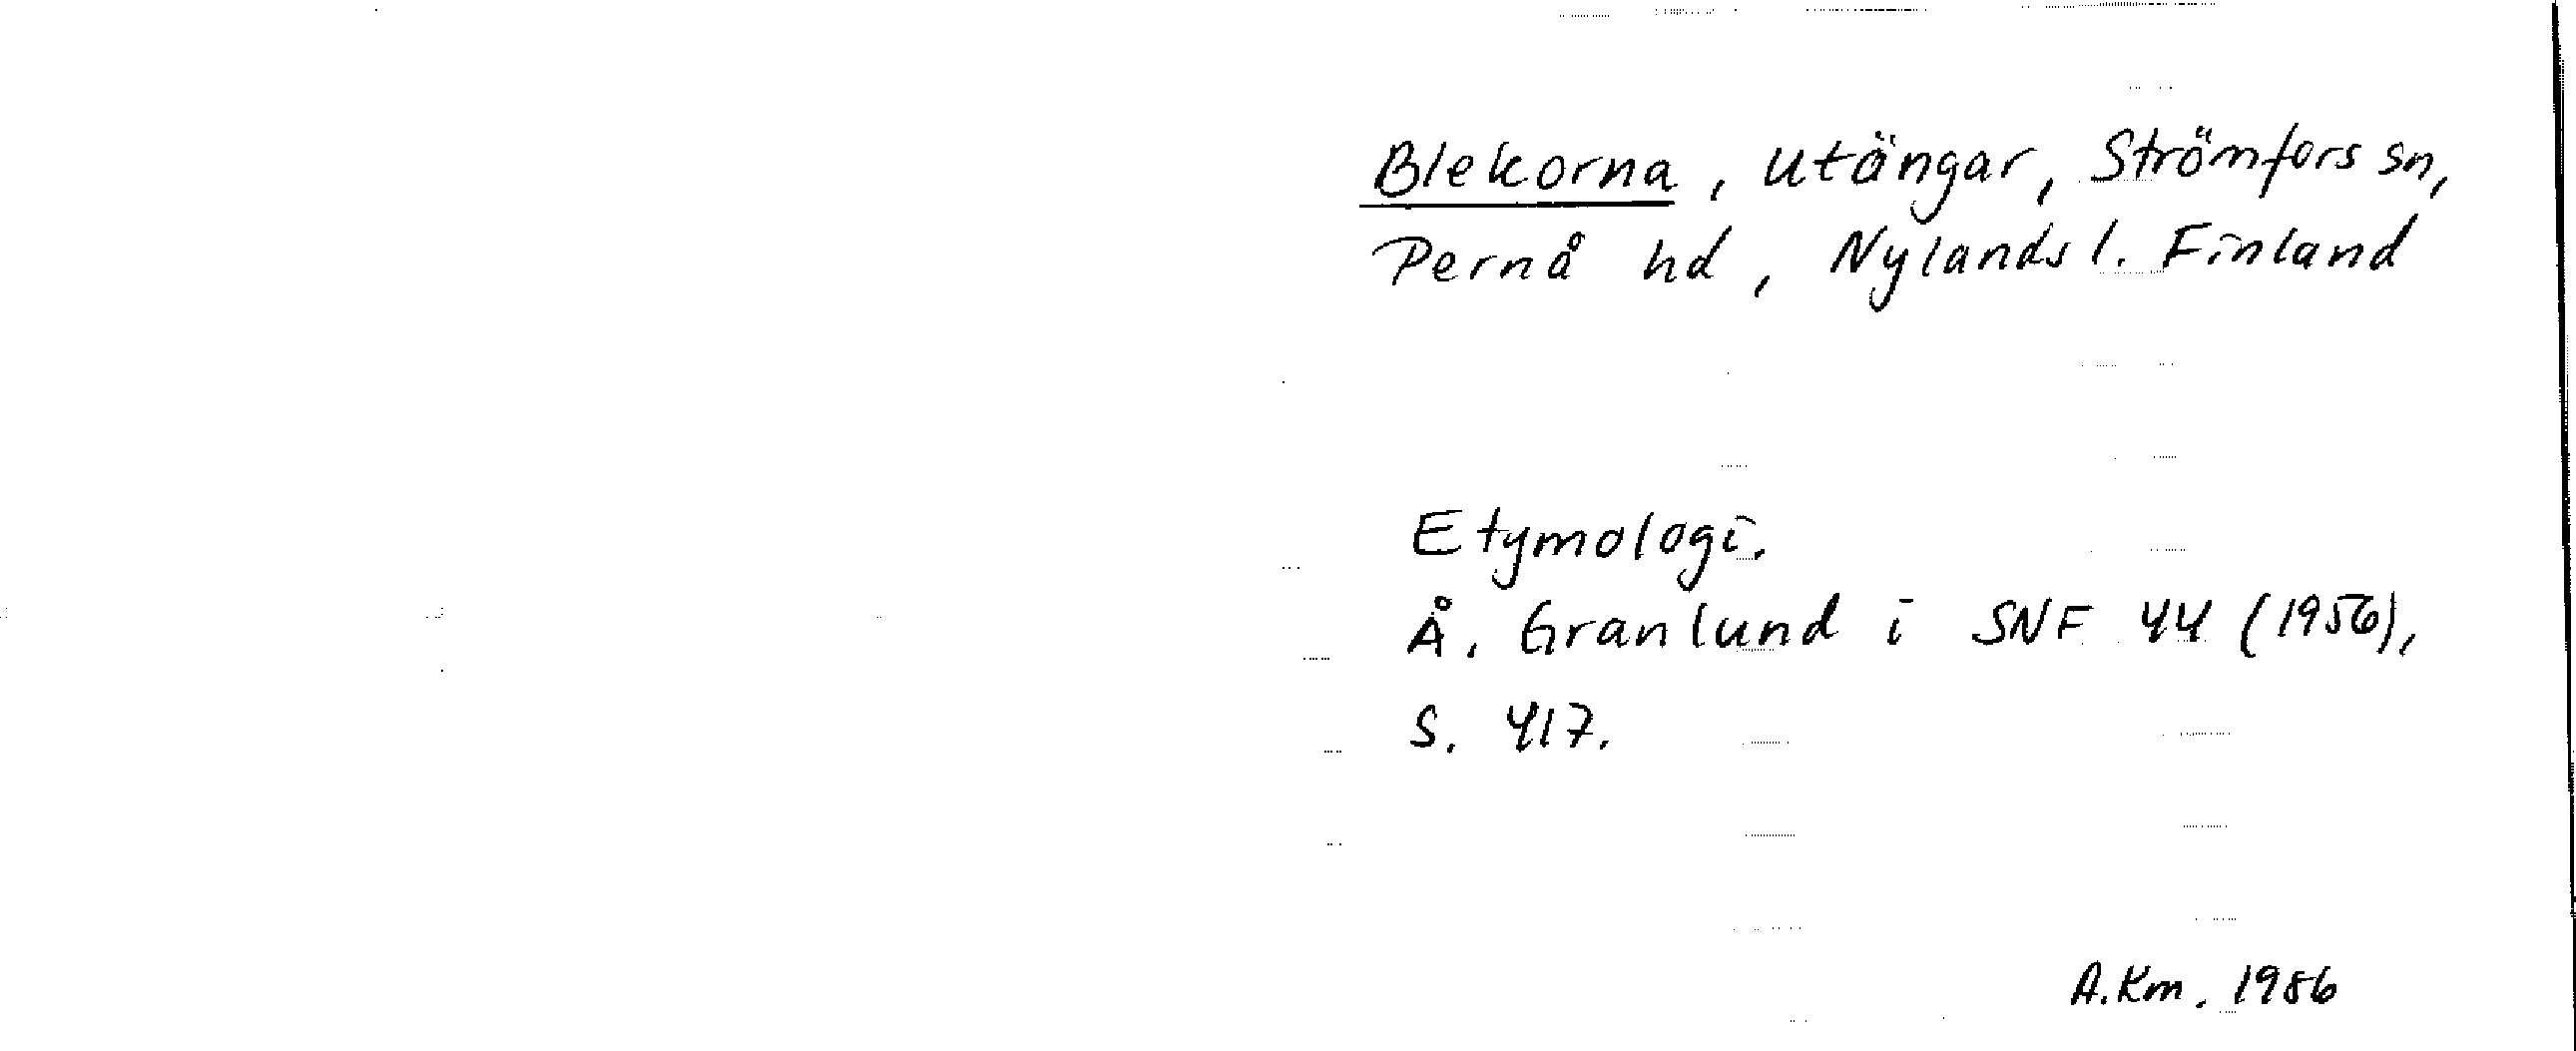 Blekorna, utängar, Strömfors sn,
Pernå hd, Nylands l. Finland
Etymologi.
Å. Granlund i SNF 44 (1956),
S. 417.
A.Km. 1986